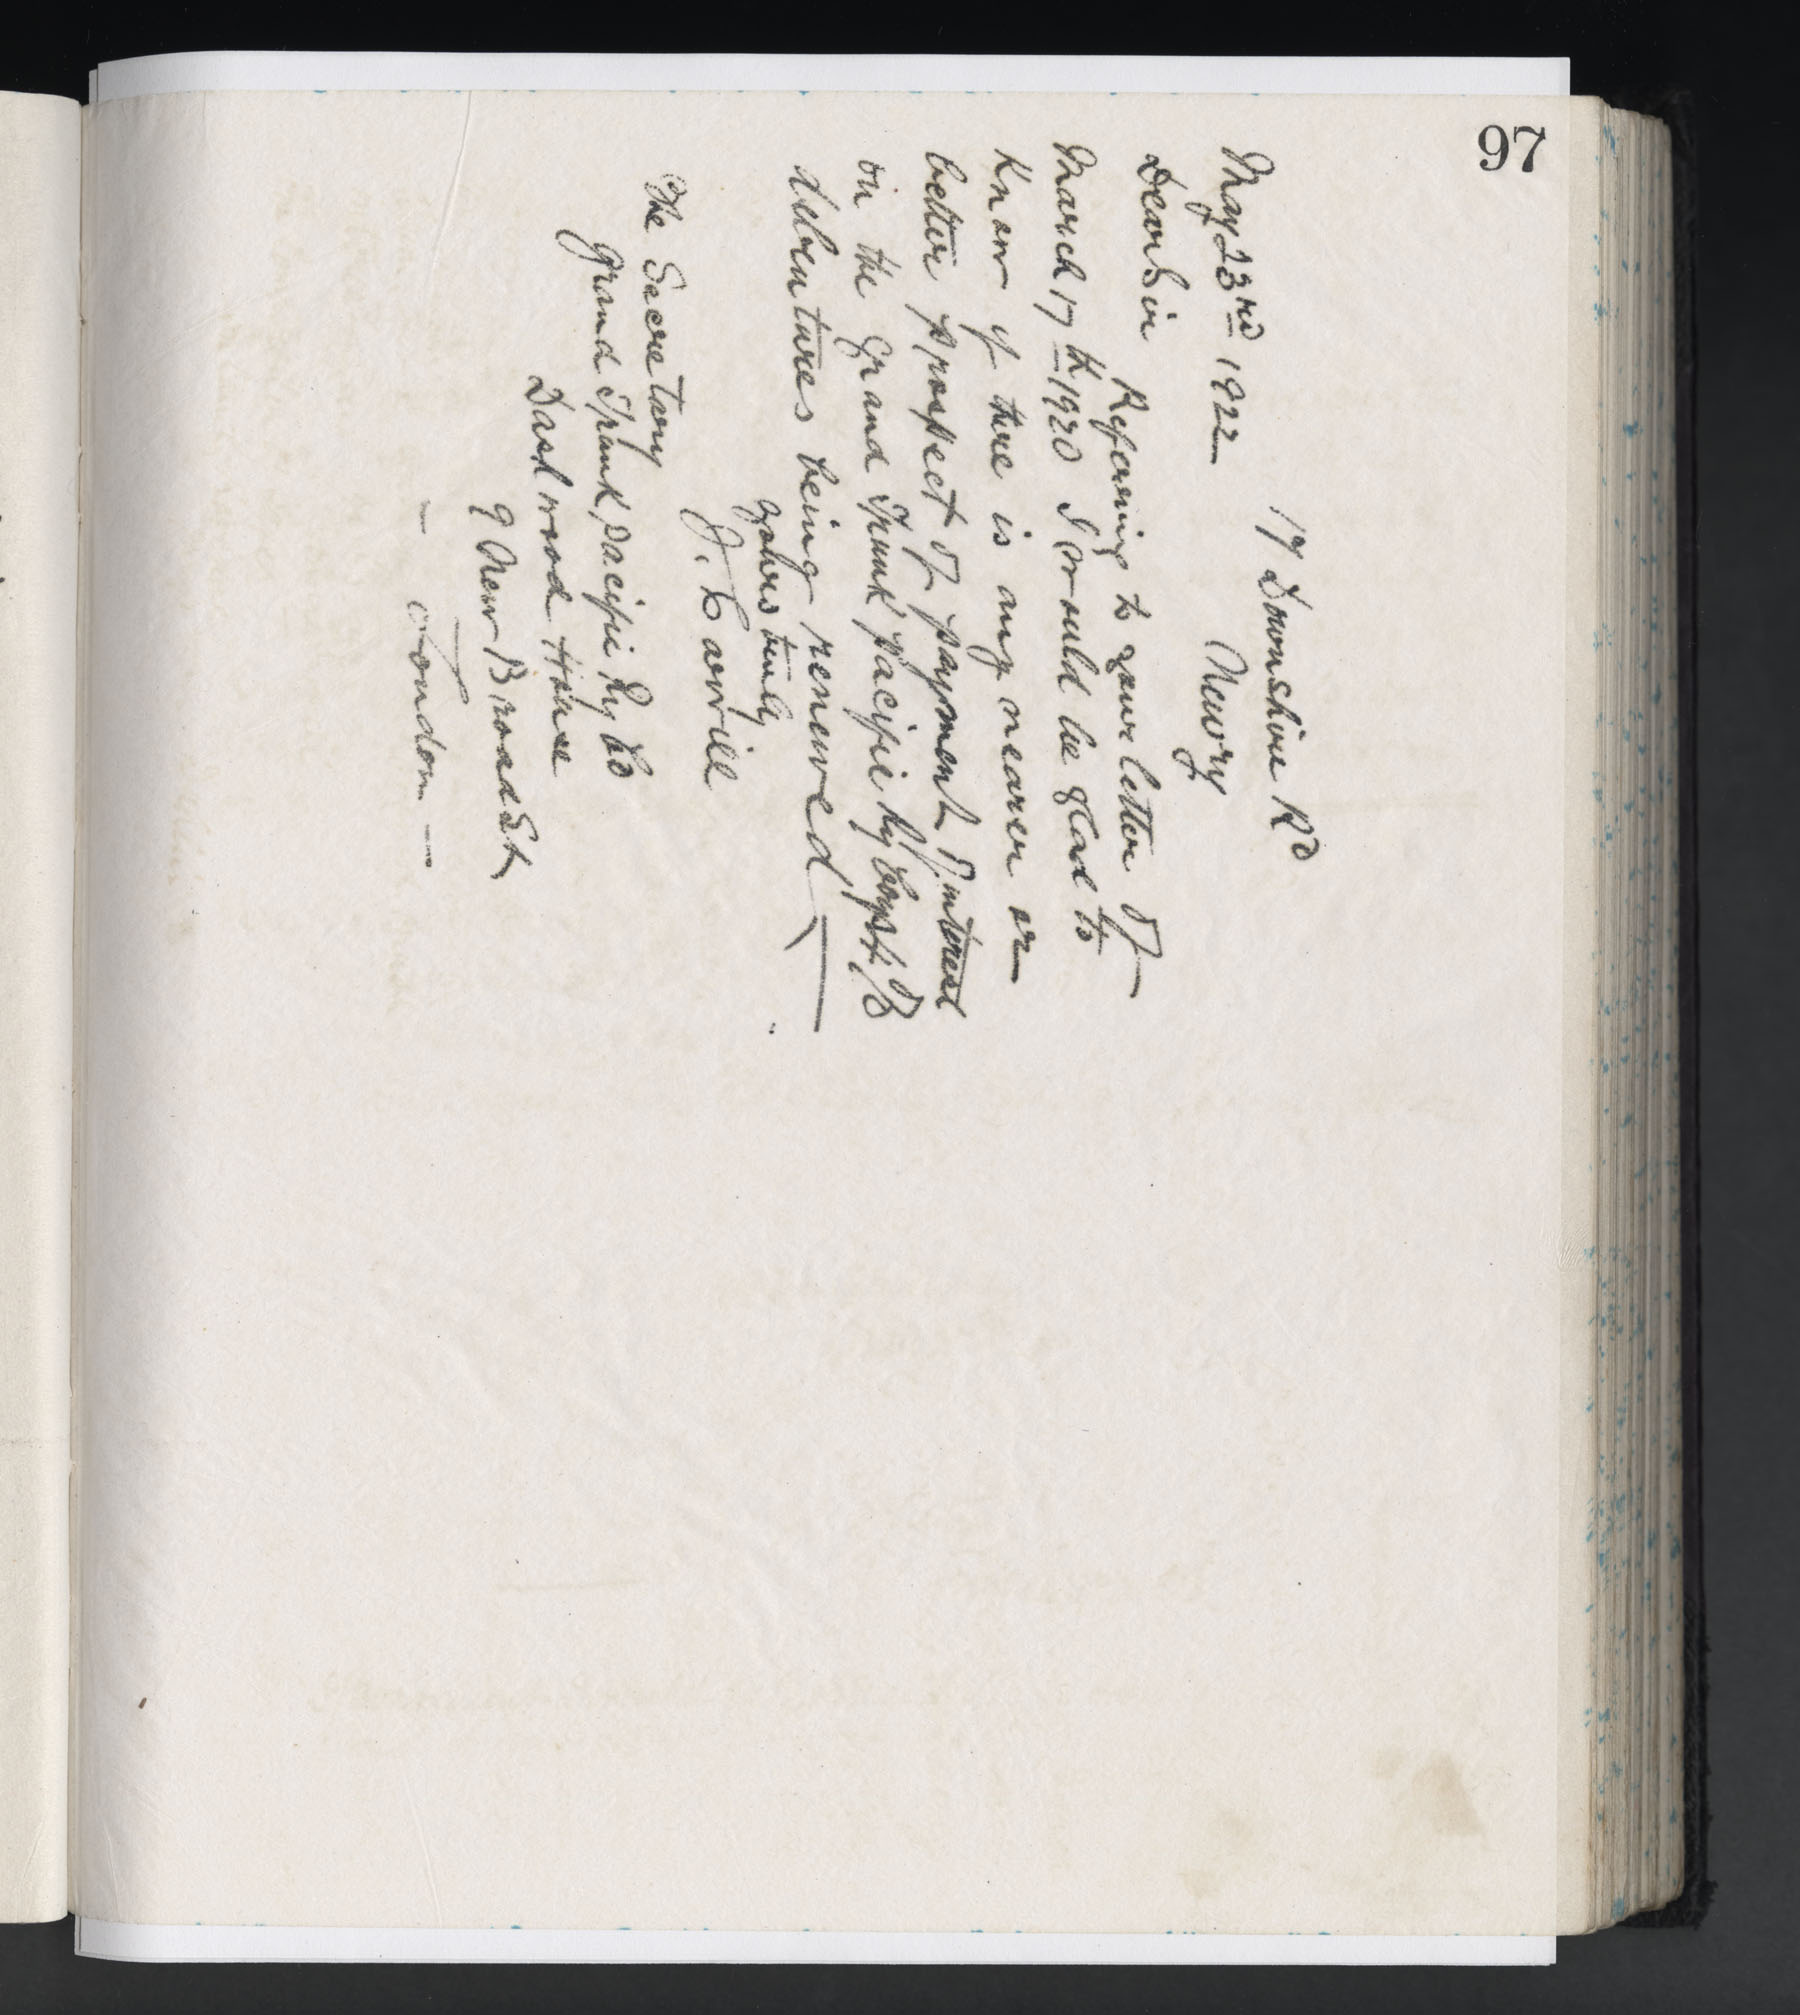 97
17 Downshire Rd
Newry
May 23rd 1922
Dear Sir
Refering to your letter of
March 17th 1920 I would be glad to
Know if there is any nearer or
better prospect of payment of interest
on the Grand Trunk Pacific Ry
debentures being renewed
Yours truly
J. Carvill
The Secretary
Grand Trunk Pacific Ry Co
Dashwood House
9 New Broad St
London